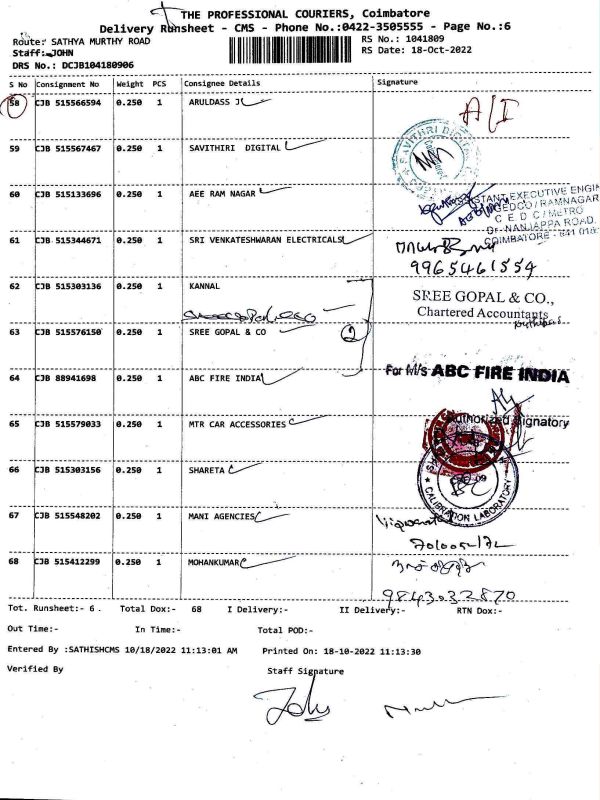 THE PROFESSIONAL COURIERS, Coimbatore
Delivery Runsheet - CMS - Phone No.:0422-3505555 - Page No.:6
Route: SATHYA MURTHY ROAD
RS No.: 1041809
Staff: JOHN
RS Date: 18-Oct-2022
DRS No.: DCJB104180906
S No Consignment No Weight PCS Consignee Details Signature
58 CJB 515566594 0.250 1 ARULDASS J A/I
59 CJB 515567467 0.250 1 SAVITHIRI DIGITAL
SAVITHRI DIGITAL
60 CJB 515133696 0.250 1 AEE RAM NAGAR
ASSISTANT EXECUTIVE ENGIN
TANGEDCO / RAMNAGAR
C E D C / METRO
Dr. NANJAPPA ROAD,
COIMBATORE - 641 018.
61 CJB 515344671 0.250 1 SRI VENKATESHWARAN ELECTRICALS
9965461554
62 CJB 515303136 0.250 1 KANNAL
SREE GOPAL & CO.,
Chartered Accountants
63 CJB 515576150 0.250 1 SREE GOPAL & CO
2
64 CJB 88941698 0.250 1 ABC FIRE INDIA
For M/s ABC FIRE INDIA
Authorized Signatory
65 CJB 515579033 0.250 1 MTR CAR ACCESSORIES
66 CJB 515303156 0.250 1 SHARETA
CALIBRATION LABORATORY
67 CJB 515548202 0.250 1 MANI AGENCIES
68 CJB 515412299 0.250 1 MOHANKUMAR
9843032870
Tot. Runsheet:- 6 . Total Dox:- 68 I Delivery:- II Delivery:- RTN Dox:-
Out Time:- In Time:- Total POD:-
Entered By :SATHISHCMS 10/18/2022 11:13:01 AM Printed On: 18-10-2022 11:13:30
Verified By Staff Signature
John